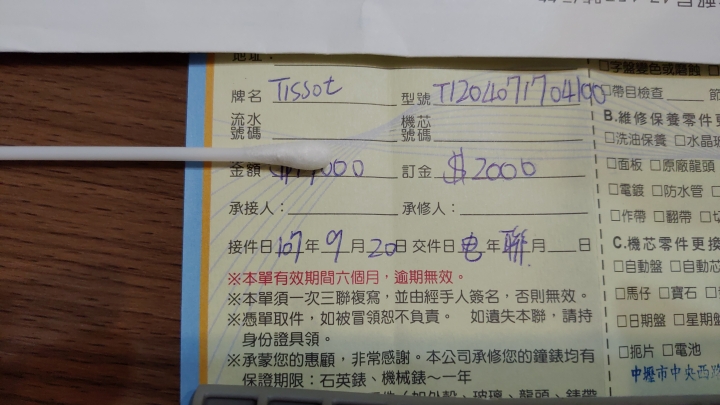 地址：
牌名 Tissot 型號 T1204071704100
流水號碼 機芯號碼
金額 訂金 $2000
承接人： 承修人：
接件日 107年 9月 20日 交件日 电 年 聯 月 日
※本單有效期間六個月，逾期無效。
※本單須一次三聯複寫，並由經手人簽名，否則無效。
※憑單取件，如被冒領恕不負責。 如遺失本聯，請持
身份證具領。
※承蒙您的惠顧，非常感謝。本公司承修您的鐘錶均有
保證期限：石英錶、機械錶～一年
□字盤變色或磨蝕
□帶目檢查 節
B.維修保養零件更
□洗油保養 □水晶玻
□面板 □原廠龍頭
□電鍍 □防水管
□作帶 □翻帶
C.機芯零件更換
□自動盤 □自動芯
□馬仔 □寶石
□日期盤 □星期盤
□扼片 □電池
中壢市中央西路